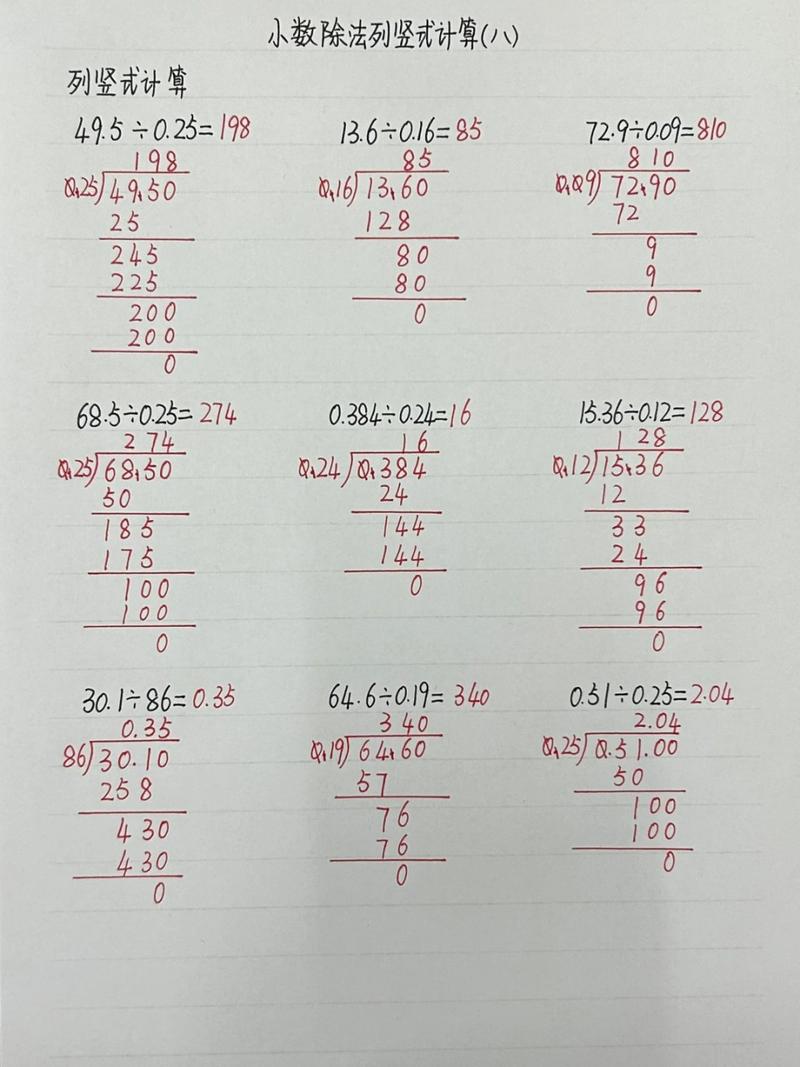 小数除法列竖式计算(八)
列竖式计算
49.5÷0.25=198
198
0.25)49.50
25
245
225
200
200
0
13.6÷0.16=85
85
0.16)13.60
128
80
80
0
72.9÷0.09=810
810
0.09)72.90
72
9
9
0
68.5÷0.25=274
274
0.25)68.50
50
185
175
100
100
0
0.384÷0.24=16
16
0.24)0.384
24
144
144
0
15.36÷0.12=128
128
0.12)15.36
12
33
24
96
96
0
30.1÷86=0.35
0.35
86)30.10
258
430
430
0
64.6÷0.19=340
340
0.19)64.60
57
76
76
0
0.51÷0.25=2.04
2.04
0.25)0.51.00
50
100
100
0